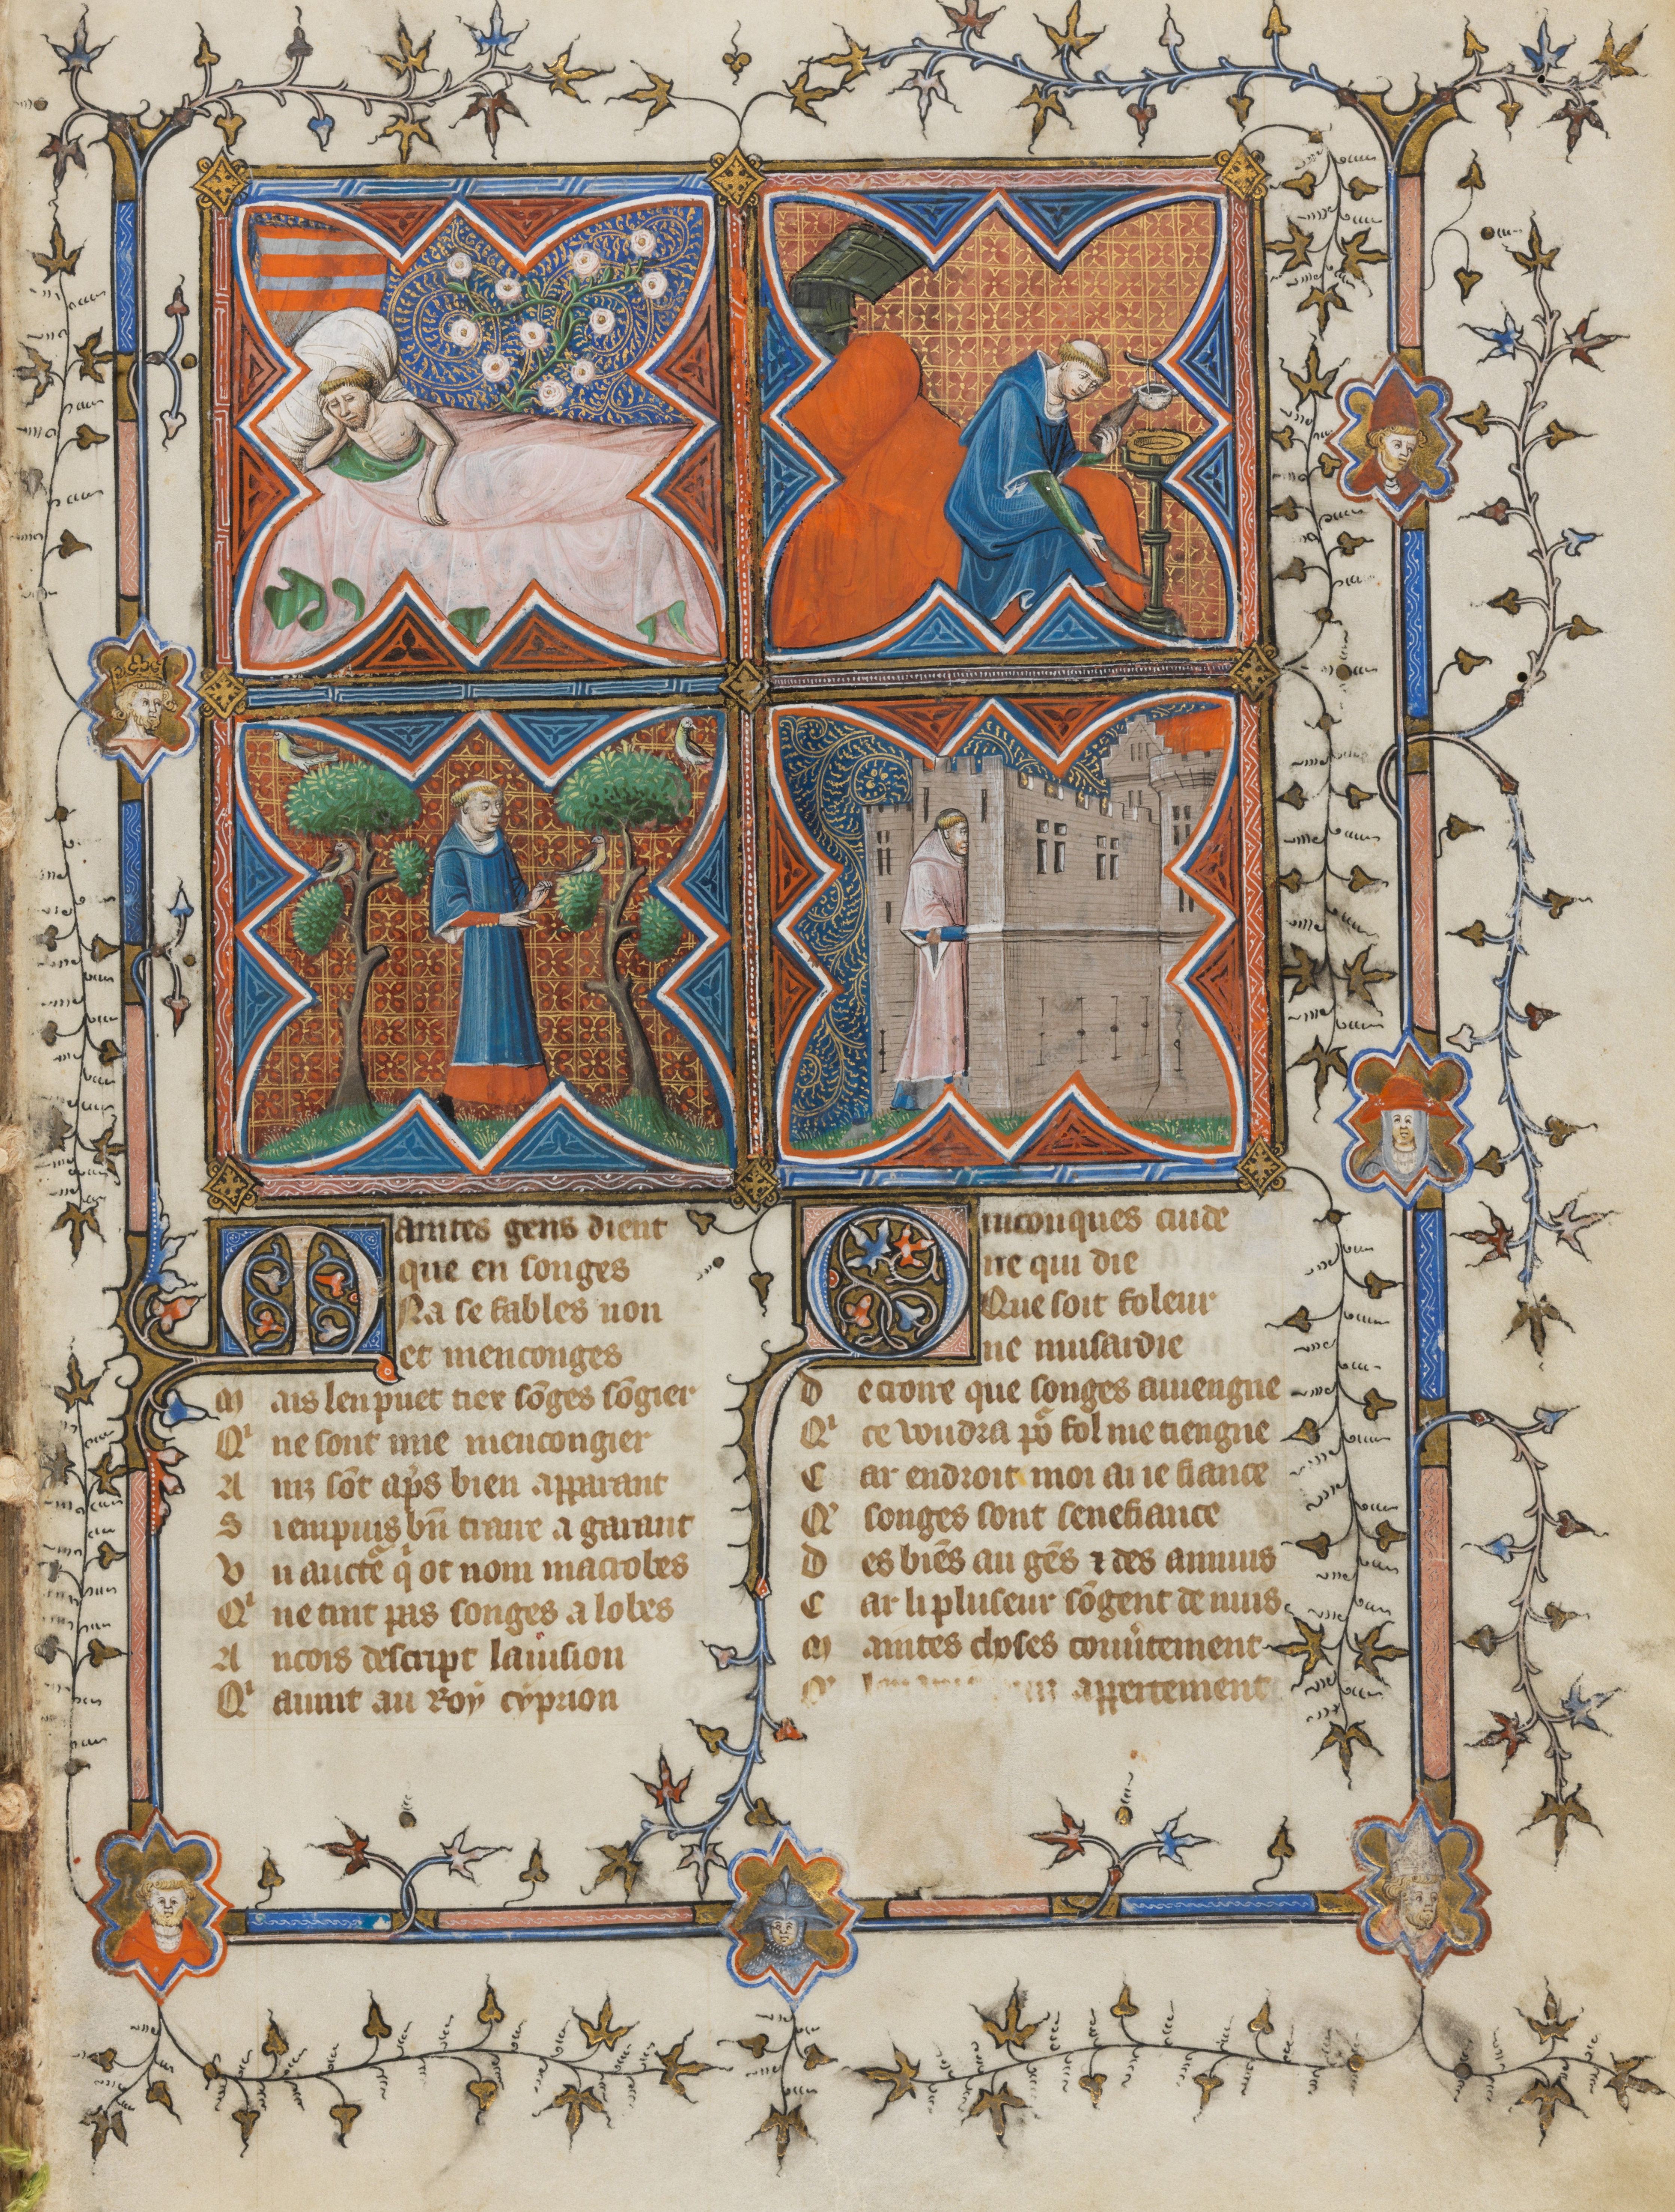 Maintes gens dient
que en songes
Na se fables non
et menconges
Mais len puet tiex sōges sōgier
Qⁱ ne sont mie mencongier
Ainz sōt ap̄s bien apparant
Si en puis bn̄ traire a garant
Vn aucte᷑ qⁱ ot nom macrobes
Qⁱ ne tint pas songes a lobes
Ancois descript la uision
Qⁱ auint au Roy cyprion
Quiconques cuide
ne qui die
Que soit foleur
ne musardie
De croire que songes auiengne
Qⁱ ce voudra po᷑ fol me tiengne
Car endroit moi ai ie fiance
Qᵉ songes sont senefiance
Des biēs au gēs ⁊ des annuis
Car li pluseur sōgent de nuis
Maintes choses couu᷑tement
appertement